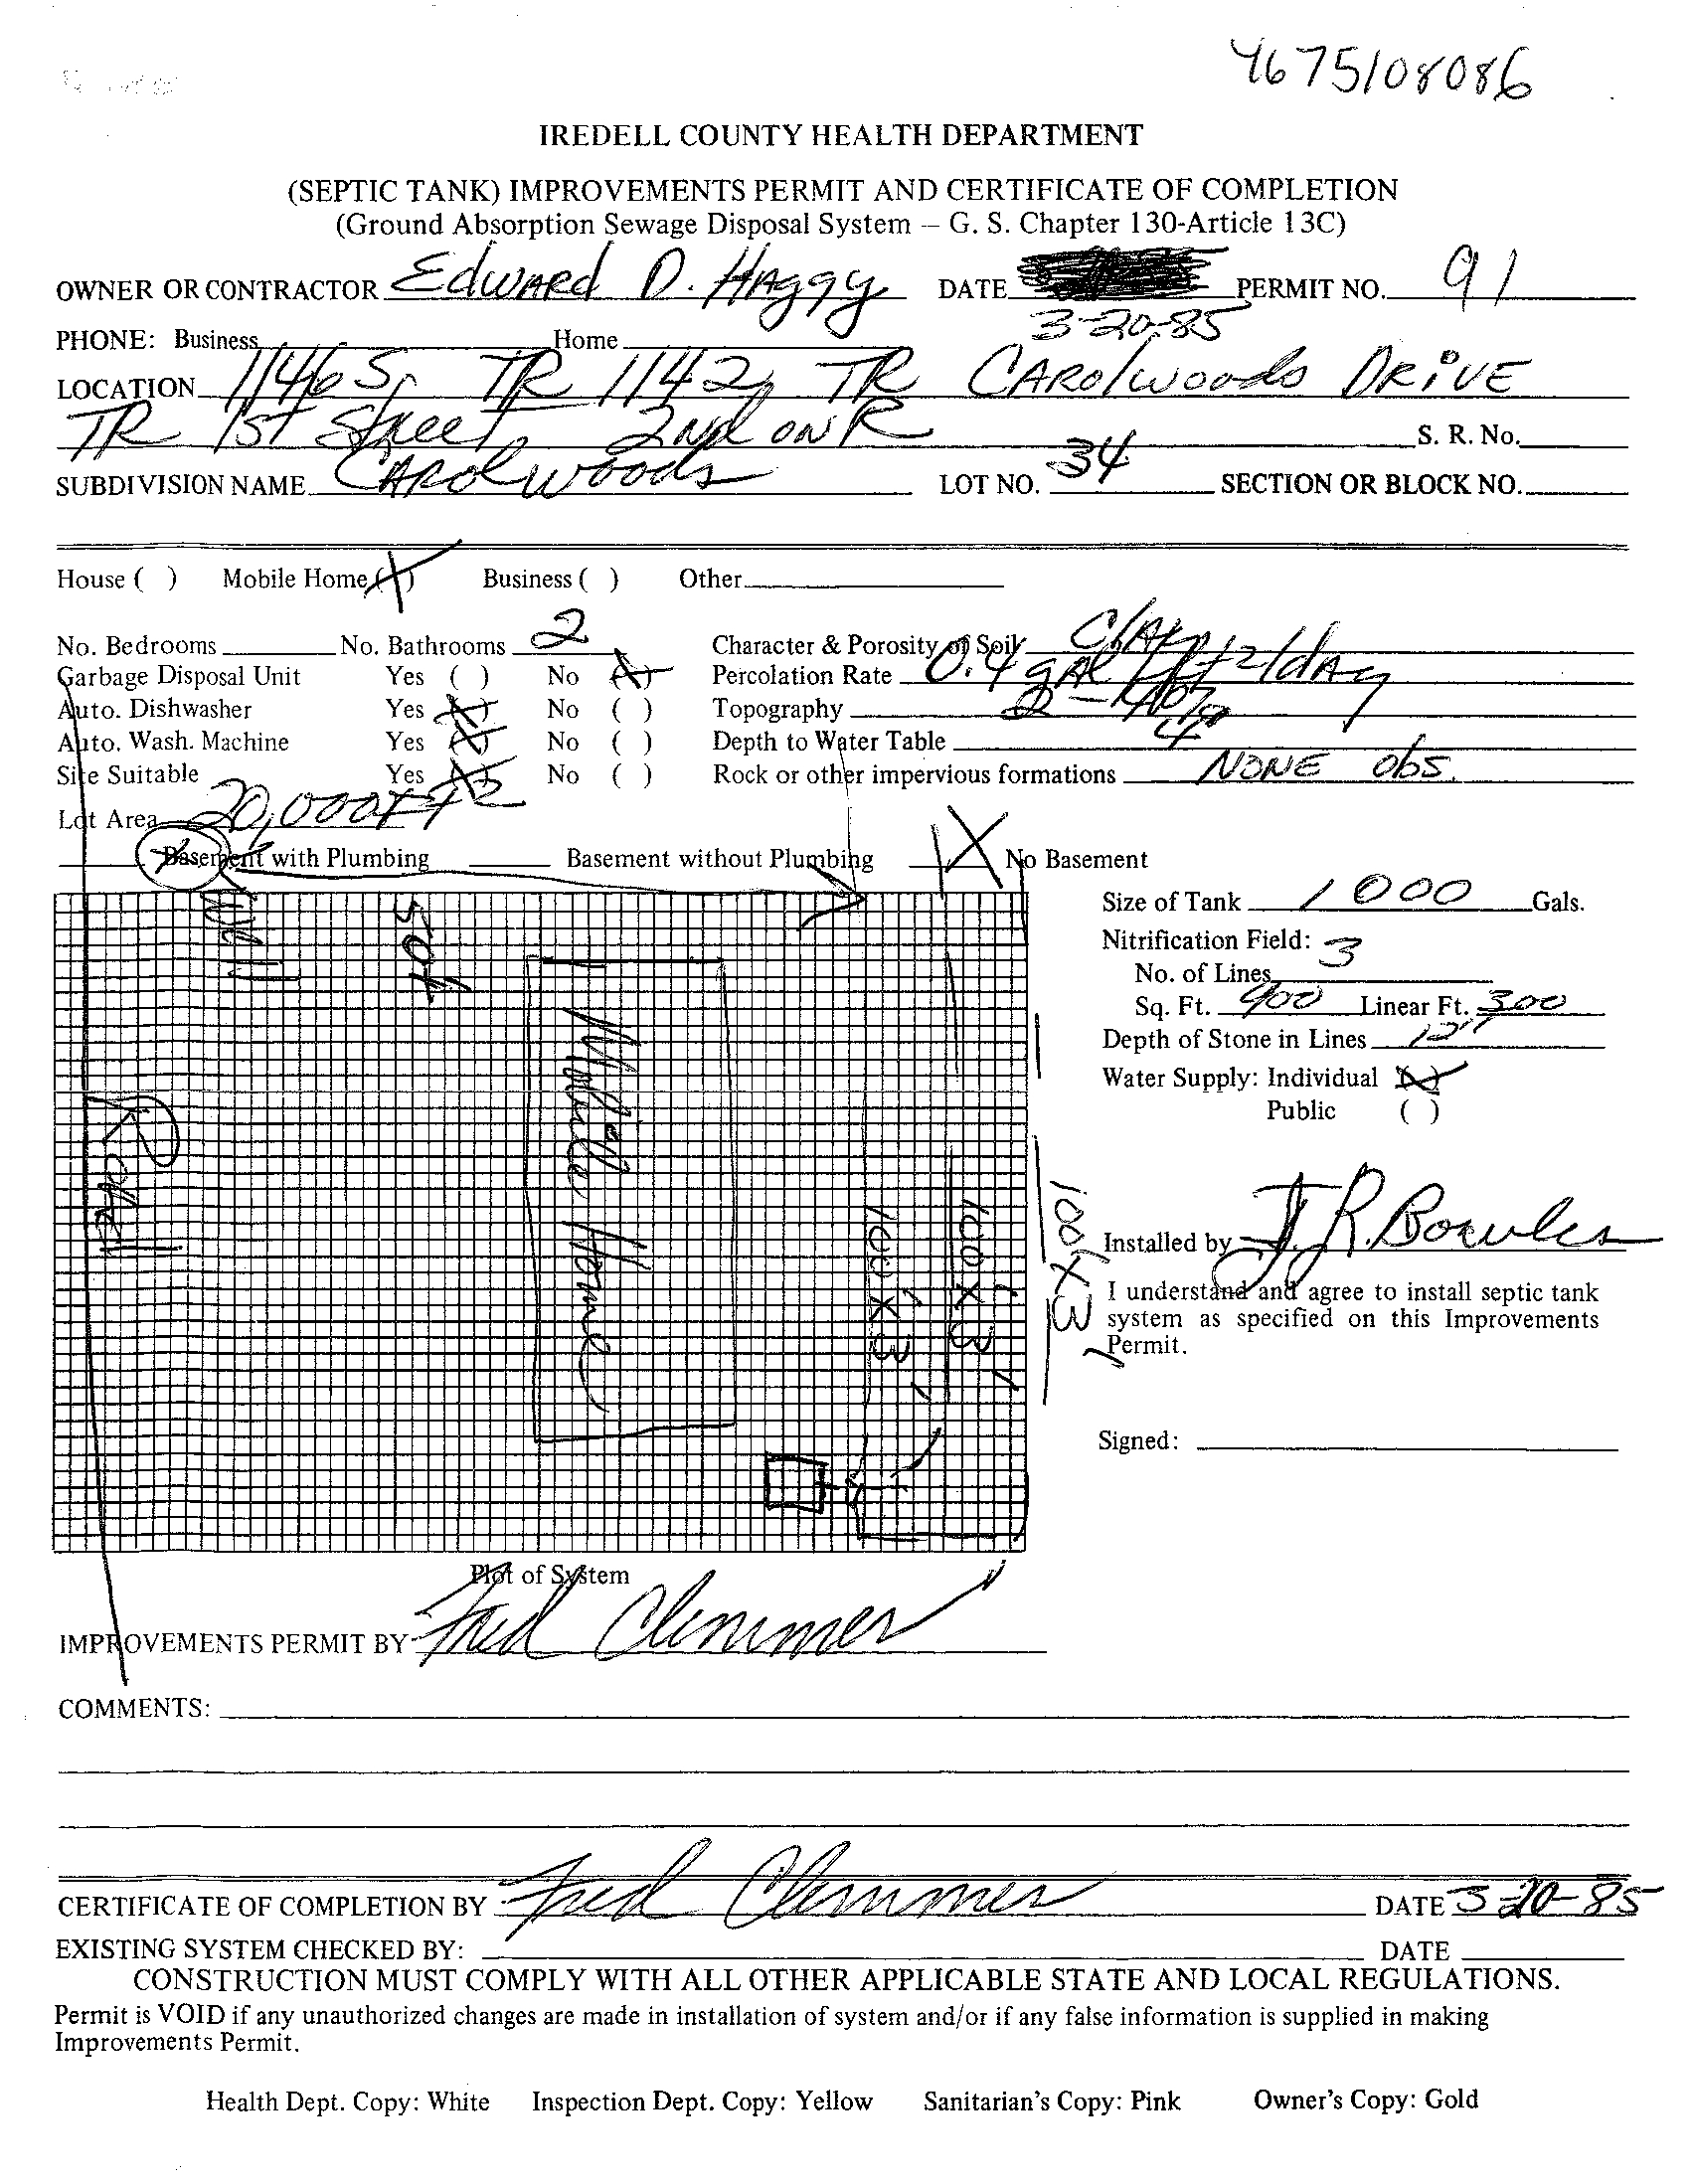 4675108086
IREDELL COUNTY HEALTH DEPARTMENT
(SEPTIC TANK) IMPROVEMENTS PERMIT AND CERTIFICATE OF COMPLETION
(Ground Absorption Sewage Disposal System – G. S. Chapter 130-Article 13C)
OWNER OR CONTRACTOR Edward D. Haggy DATE PERMIT NO. 91
3-20-85
PHONE: Business Home
LOCATION 1146 S, TR 1142, TR Carolwoods Drive
TR 1st Street, 2nd on R S. R. No.
SUBDIVISION NAME Carolwoods LOT NO. 34 SECTION OR BLOCK NO.
House ( ) Mobile Home (X) Business ( ) Other
No. Bedrooms No. Bathrooms 2 Character & Porosity of Soil Clay
Garbage Disposal Unit Yes ( ) No (X) Percolation Rate 0.4 gal/ft2/day
Auto. Dishwasher Yes (X) No ( ) Topography
Auto. Wash. Machine Yes (X) No ( ) Depth to Water Table
Site Suitable Yes (X) No ( ) Rock or other impervious formations None obs.
Lot Area 20,000 ft2
Basement with Plumbing Basement without Plumbing X No Basement
Well
50ft
Mobile Home
Road
100 X 3'
100 X 3'
100 X 3'
Size of Tank 1000 Gals.
Nitrification Field:
No. of Lines 3
Sq. Ft. 900 Linear Ft. 300
Depth of Stone in Lines 12"
Water Supply: Individual (X)
Public ( )
Installed by J. R. Bowles
I understand and agree to install septic tank
system as specified on this Improvements
Permit.
Signed:
Plot of System
IMPROVEMENTS PERMIT BY Fred Clemmer
COMMENTS:
CERTIFICATE OF COMPLETION BY Fred Clemmer DATE 3-20-85
EXISTING SYSTEM CHECKED BY: DATE
CONSTRUCTION MUST COMPLY WITH ALL OTHER APPLICABLE STATE AND LOCAL REGULATIONS.
Permit is VOID if any unauthorized changes are made in installation of system and/or if any false information is supplied in making
Improvements Permit.
Health Dept. Copy: White Inspection Dept. Copy: Yellow Sanitarian's Copy: Pink Owner's Copy: Gold